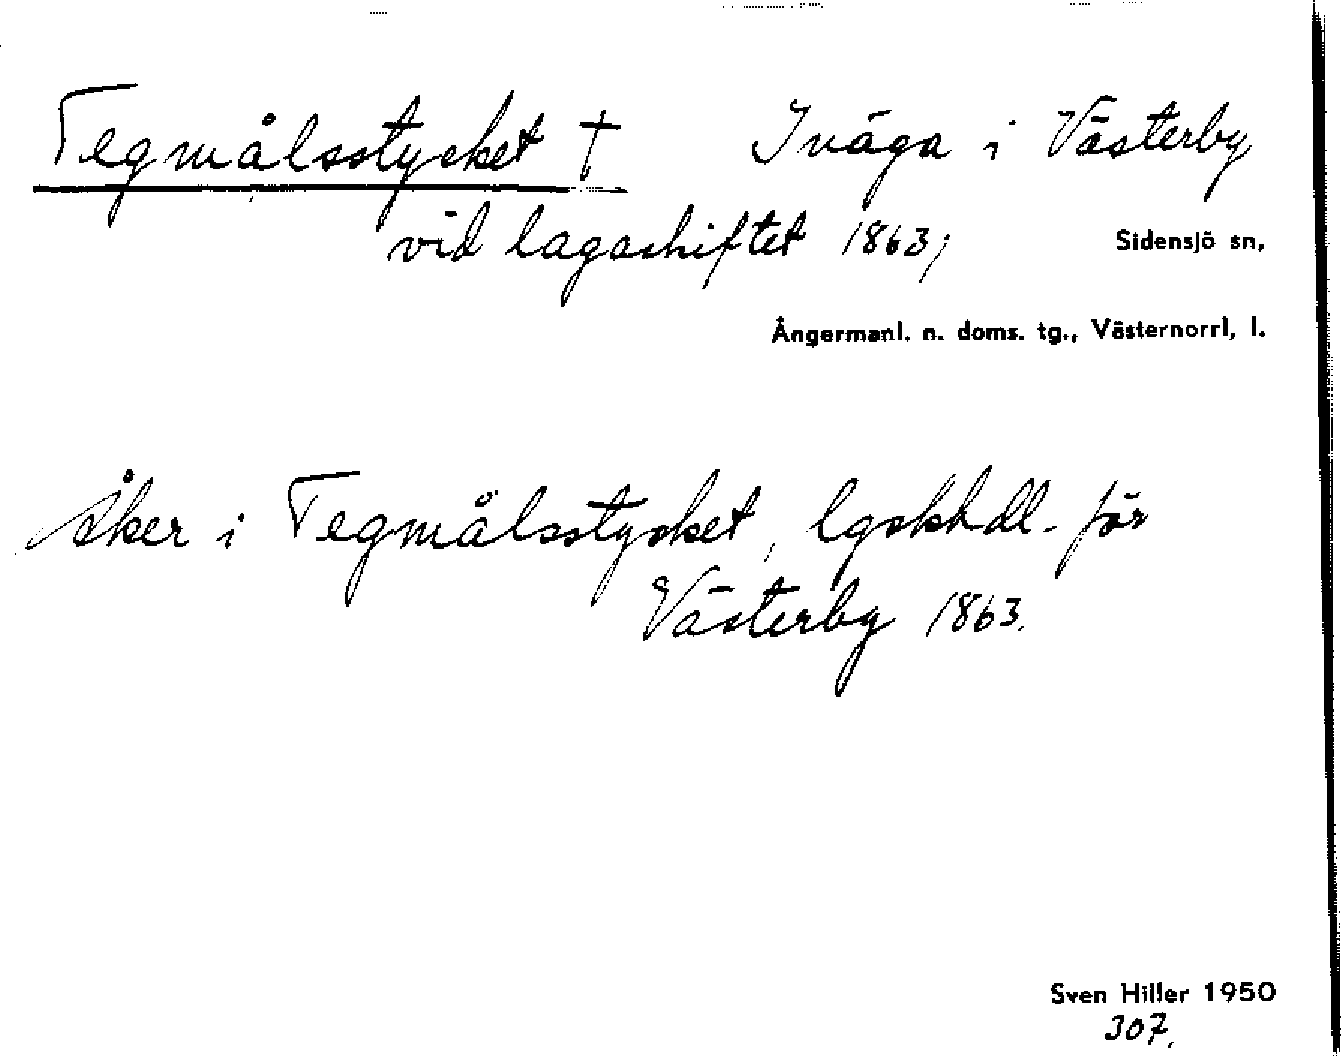 Tegmålsstycket † Inäga i Västerby
vid lagaskiftet 1863;
Sidensjö sn,
Ångermanl. n. doms. tg., Västernorrl, l.
Åker i Tegmålsstycket, lgskhdl. för
Västerby 1863.
Sven Hiller 1950
307.